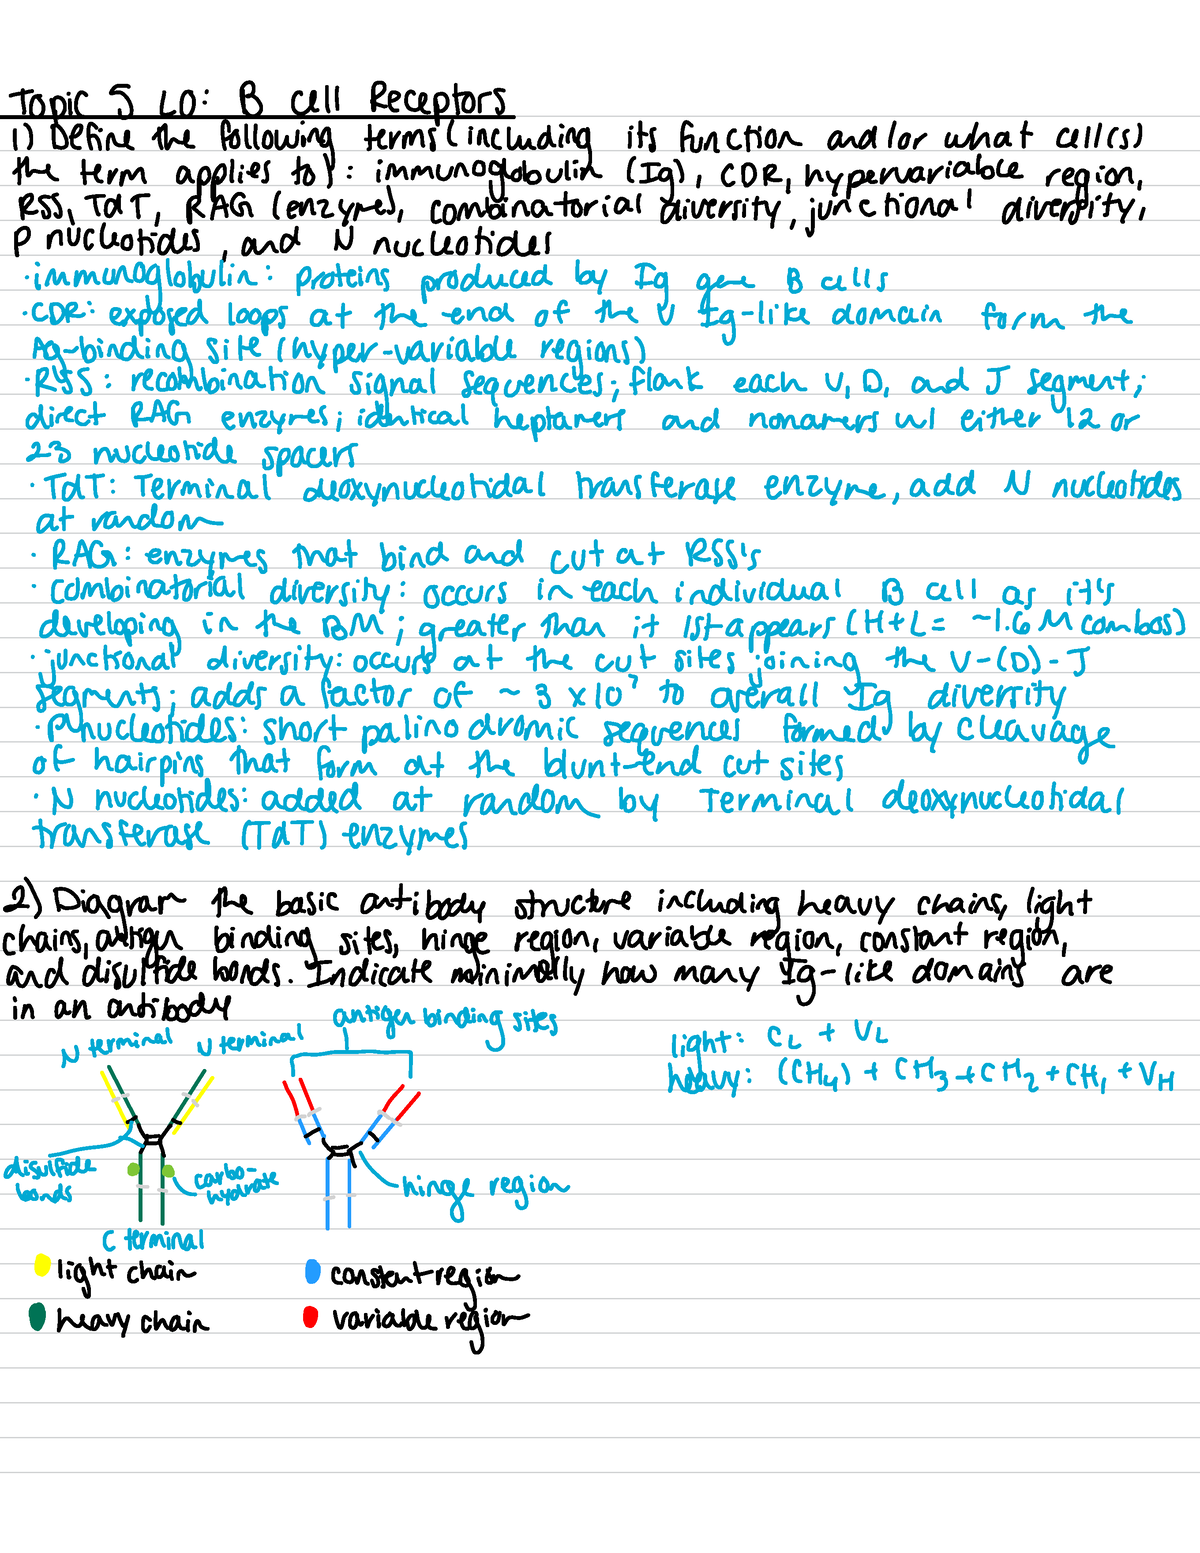 Topic 5 LO: B cell Receptors
1) Define the following terms (including its function and/or what cell(s)
the term applies to): immunoglobulin (Ig), CDR, hypervariable region,
RSS, TdT, RAG (enzyme), combinatorial diversity, junctional diversity,
P nucleotides, and N nucleotides
· immunoglobulin: proteins produced by Ig gene B cells
· CDR: exposed loops at the end of the V Ig-like domain form the
Ag-binding site (hyper-variable regions)
· RSS: recombination signal sequences; flank each V, D, and J segment;
direct RAG enzymes; identical heptamers and nonamers w/ either 12 or
23 nucleotide spacers
· TdT: Terminal deoxynucleotidal transferase enzyme, add N nucleotides
at random
· RAG: enzymes that bind and cut at RSS's
· combinatorial diversity: occurs in each individual B cell as it's
developing in the BM; greater than it 1st appears (H+L= ~1.6 M combos)
· junctional diversity: occurs at the cut sites joining the V-(D)-J
segments; adds a factor of ~ 3 x 10⁷ to overall Ig diversity
· P nucleotides: short palinodromic sequences formed by cleavage
of hairpins that form at the blunt-end cut sites
· N nucleotides: added at random by Terminal deoxynucleotidal
transferase (TdT) enzymes
2) Diagram the basic antibody structure including heavy chains, light
chains, antigen binding sites, hinge region, variable region, constant region,
and disulfide bonds. Indicate minimally how many Ig-like domains are
in an antibody
N terminal N terminal antigen binding sites
light: CL + VL
heavy: (CH4) + CH3 + CH2 + CH1 + VH
disulfide
bonds
carbo-
hydrate
hinge region
C terminal
light chain constant region
heavy chain variable region